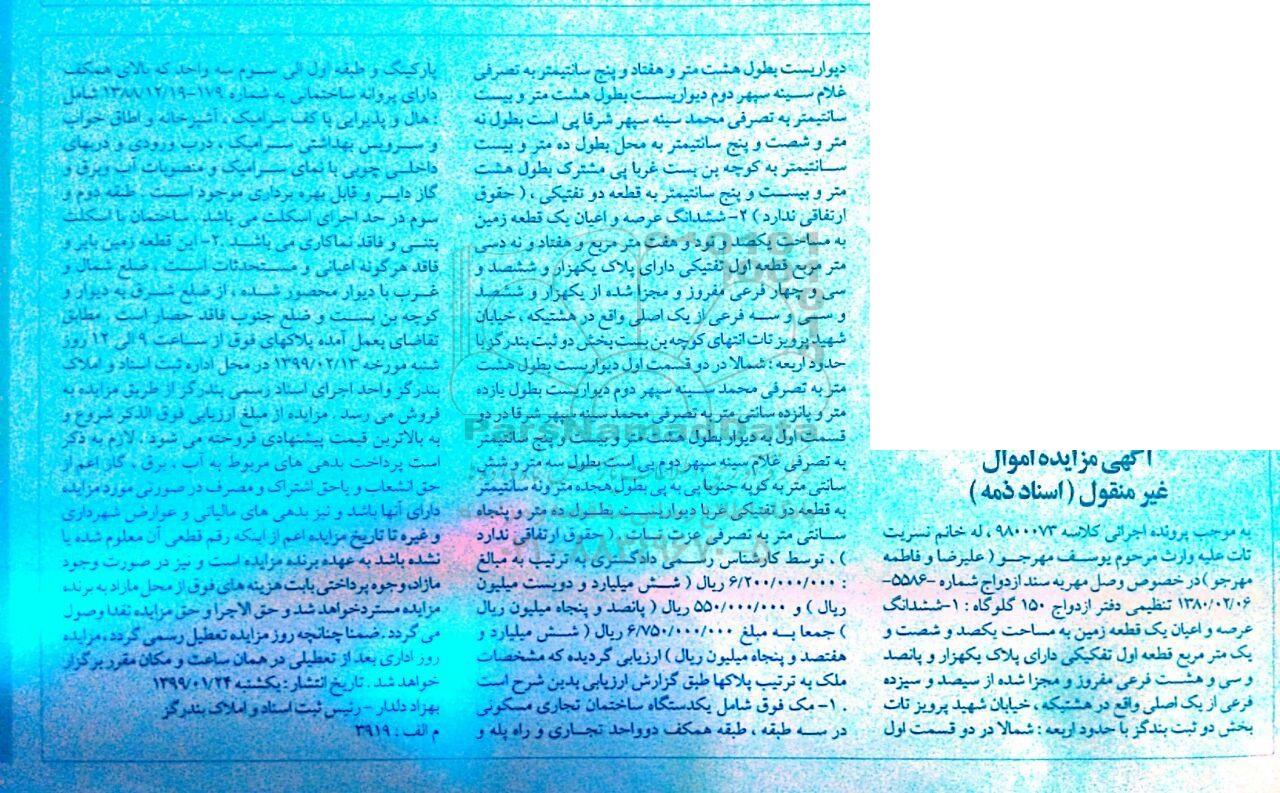 آگهی مزایده اموال
غیر منقول ( اسناد ذمه )
به موجب پرونده اجرائی کلاسه ۹۸۰۰۰۷۳ ، له خانم نسریت
تات علیه وارث مرحوم یوسف مهرجو ( علیرضا و فاطمه
مهرجو ) در خصوص وصل مهریه سند ازدواج شماره -۵۵۸۶-
۱۳۸۰/۰۲/۰۶ تنظیمی دفتر ازدواج ۱۵۰ گلوگاه : ۱-ششدانگ
عرصه و اعیان یک قطعه زمین به مساحت یکصد و شصت و
یک متر مربع قطعه اول تفکیکی دارای پلاک یکهزار و پانصد
و سی و هشت فرعی مفروز و مجزا شده از سیصد و سیزده
فرعی از یک اصلی واقع در هشتیکه ، خیابان شهید پرویز تات
بخش دو ثبت بندگز با حدود اربعه : شمالا در دو قسمت اول
دیواریست بطول هشت متر و هفتاد و پنج سانتیمتر به تصرفی
غلام سینه سپهر دوم دیواریست بطول هشت متر و بیست
سانتیمتر به تصرفی محمد سینه سپهر شرقا پی است بطول نه
متر و شصت و پنج سانتیمتر به محل بطول ده متر و بیست
سانتیمتر به کوچه بن بست غربا پی مشترک بطول هشت
متر و بیست و پنج سانتیمتر به قطعه دو تفتیکی ، ( حقوق
ارتفاقی ندارد ) ۲- ششدانگ عرصه و اعیان یک قطعه زمین
به مساحت یکصد و نود و هفت متر مربع و هفتاد و نه دسی
متر مربع قطعه اول تفتیکی دارای پلاک یکهزار و ششصد و
سی و چهار فرعی مفروز و مجزا شده از یکهزار و ششصد
و سی و سه فرعی از یک اصلی واقع در هشتیکه ، خیابان
شهید پرویز تات انتهای کوچه بن بست بخش دو ثبت بندرگز با
حدود اربعه : شمالا در دو قسمت اول دیواریست بطول هشت
متر به تصرفی محمد سینه سپهر دوم دیواریست بطول یازده
متر و پانزده سانتی متر به تصرفی محمد سینه سپهر شرقا در دو
قسمت اول به دیوار بطول هشت متر و بیست و پنج سانتیمتر
به تصرفی غلام سینه سپهر دوم پی است بطول سه متر و شش
سانتی متر به کوچه جنوبا پی به پی بطول هجده متر و نه سانتیمتر
به قطعه دو تفتیکی غربا دیواریست بطول ده متر و پنجاه
سانتی متر به تصرفی عزت تات . ( حقوق ارتفاقی ندارد
) ، توسط کارشناس رسمی دادگستری به ترتیب به مبالغ
: ۶/۲۰۰/۰۰۰/۰۰۰ ریال ( شش میلیارد و دویست میلیون
ریال ) و ۵۵۰/۰۰۰/۰۰۰ ریال ( پانصد و پنجاه میلیون ریال
) جمعا به مبلغ ۶/۷۵۰/۰۰۰/۰۰۰ ریال ( شش میلیارد و
هفتصد و پنجاه میلیون ریال ) ارزیابی گردیده که مشخصات
ملک به ترتیب پلاکها طبق گزارش ارزیابی بدین شرح است
. ۱- مک فوق شامل یکدستگاه ساختمان تجاری مسکونی
در سه طبقه ، طبقه همکف دوواحد تجاری و راه پله و
پارکینگ و طبقه اول الی سوم سه واحد که بالای همکف
دارای پروانه ساختمانی به شماره ۱۷۹-۱۳۸۸/۱۲/۱۹ شامل
: هال و پذیرایی با کف سرامیک ، آشپزخانه و اطاق خواب
و سرویس بهداشتی سرامیک ، درب ورودی و دربهای
داخلی چوبی با نمای سرامیک و منصوبات آب وبرق و
گاز دایر و قابل بهره برداری موجود است . طبقه دوم و
سوم در حد اجرای اسکلت می باشد . ساختمان با اسکلت
بتنی و فاقد نماکاری می باشد .۲- این قطعه زمین بایر و
فاقد هرگونه اعیانی و مستحدثات است ، ضلع شمال و
غرب با دیوار محصور شده ، از ضلع شرق به دیوار و
کوچه بن بست و ضلع جنوب فاقد حصار است . مطابق
تقاضای بعمل آمده پلاکهای فوق از ساعت ۹ الی ۱۲ روز
شنبه مورخه ۱۳۹۹/۰۲/۱۳ در محل اداره ثبت اسناد و املاک
بندرگز واحد اجرای اسناد رسمی بندرگز از طریق مزایده به
فروش می رسد . مزایده از مبلغ ارزیابی فوق الذکر شروع و
به بالاترین قیمت پیشنهادی فروخته می شود . لازم به ذکر
است پرداخت بدهی های مربوط به آب ، برق ، گاز اعم از
حق انشعاب و یاحق اشتراک و مصرف در صورتی مورد مزایده
دارای آنها باشد و نیز بدهی های مالیاتی و عوارض شهرداری
و غیره تا تاریخ مزایده اعم از اینکه رقم قطعی آن معلوم شده یا
نشده باشد به عهده برنده مزایده است و نیز در صورت وجود
مازاد، وجوه پرداختی بابت هزینه های فوق از محل مازاد به برنده
مزایده مسترد خواهد شد و حق الاجرا و حق مزایده نقدا وصول
می گردد . ضمنا چنانچه روز مزایده تعطیل رسمی گردد ، مزایده
روز اداری بعد از تعطیلی در همان ساعت و مکان مقرر برگزار
خواهد شد . تاریخ انتشار : یکشنبه ۱۳۹۹/۰۱/۲۴
بهزاد دلدار - رئیس ثبت اسناد و املاک بندرگز
م الف : ۳۹۱۹
ParsNamadData